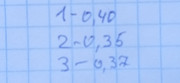 1-0,40
2-0,35
3-0,37